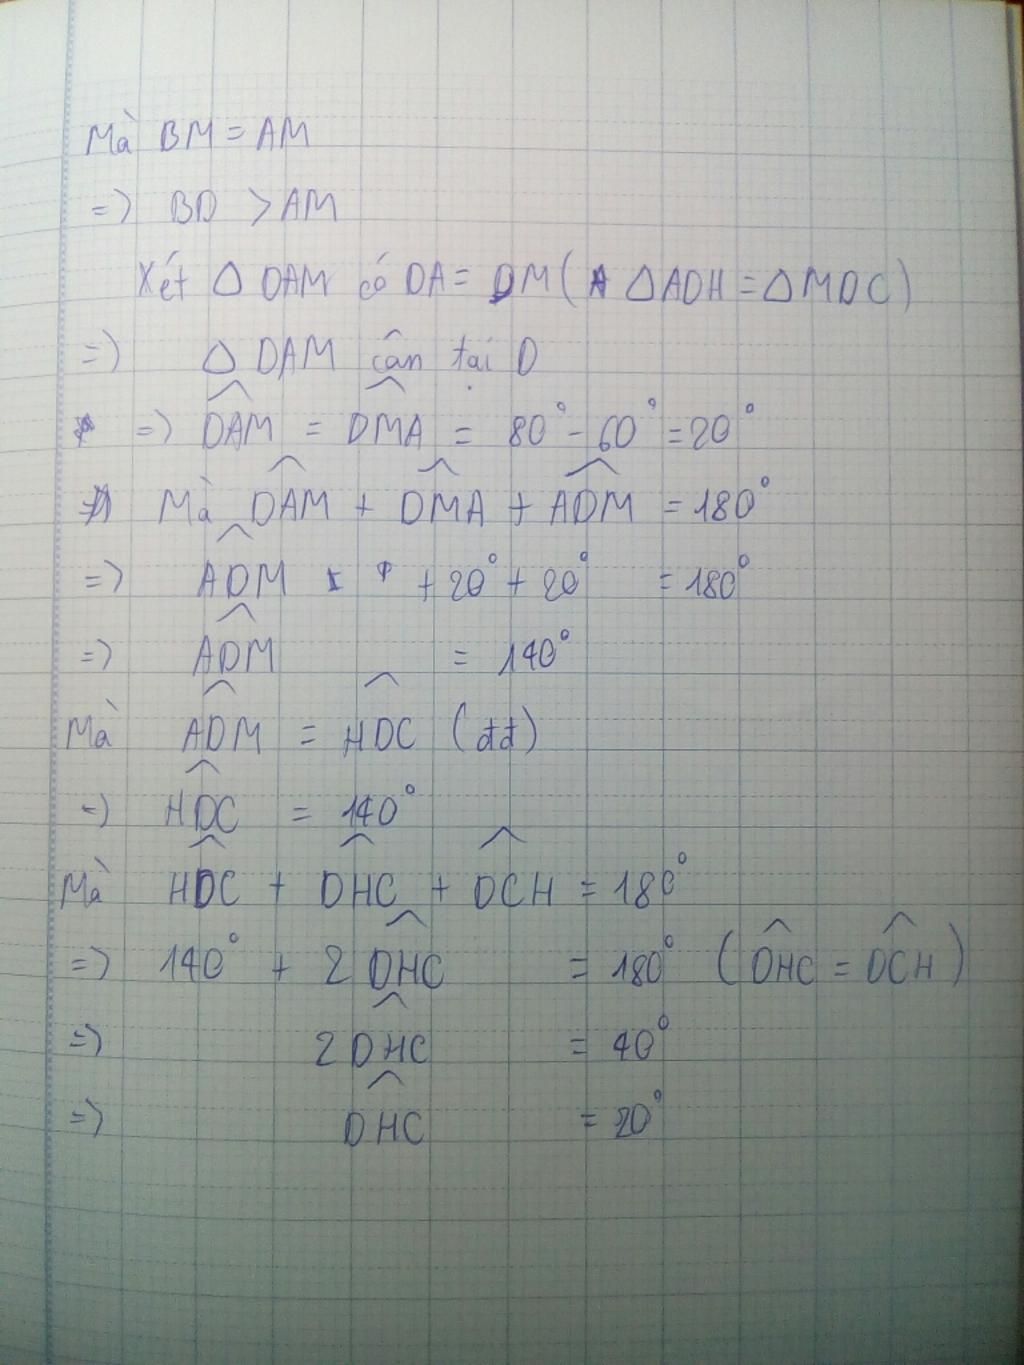 Mà BM = AM
=) BD > AM
Xét △ DAM có DA = DM ( △ ADH = △ MDC )
=) △ DAM cân tại D
=) DAM^ = DMA^ = 80° - 60° = 20°
Mà DAM^ + DMA^ + ADM^ = 180°
=) ADM^ + 20° + 20° = 180°
=) ADM^ = 140°
Mà ADM^ = HDC^ (đđ)
=) HDC^ = 140°
Mà HDC^ + DHC^ + DCH^ = 180°
=) 140° + 2 DHC^ = 180° ( DHC^ = DCH^ )
=) 2 DHC^ = 40°
=) DHC^ = 20°